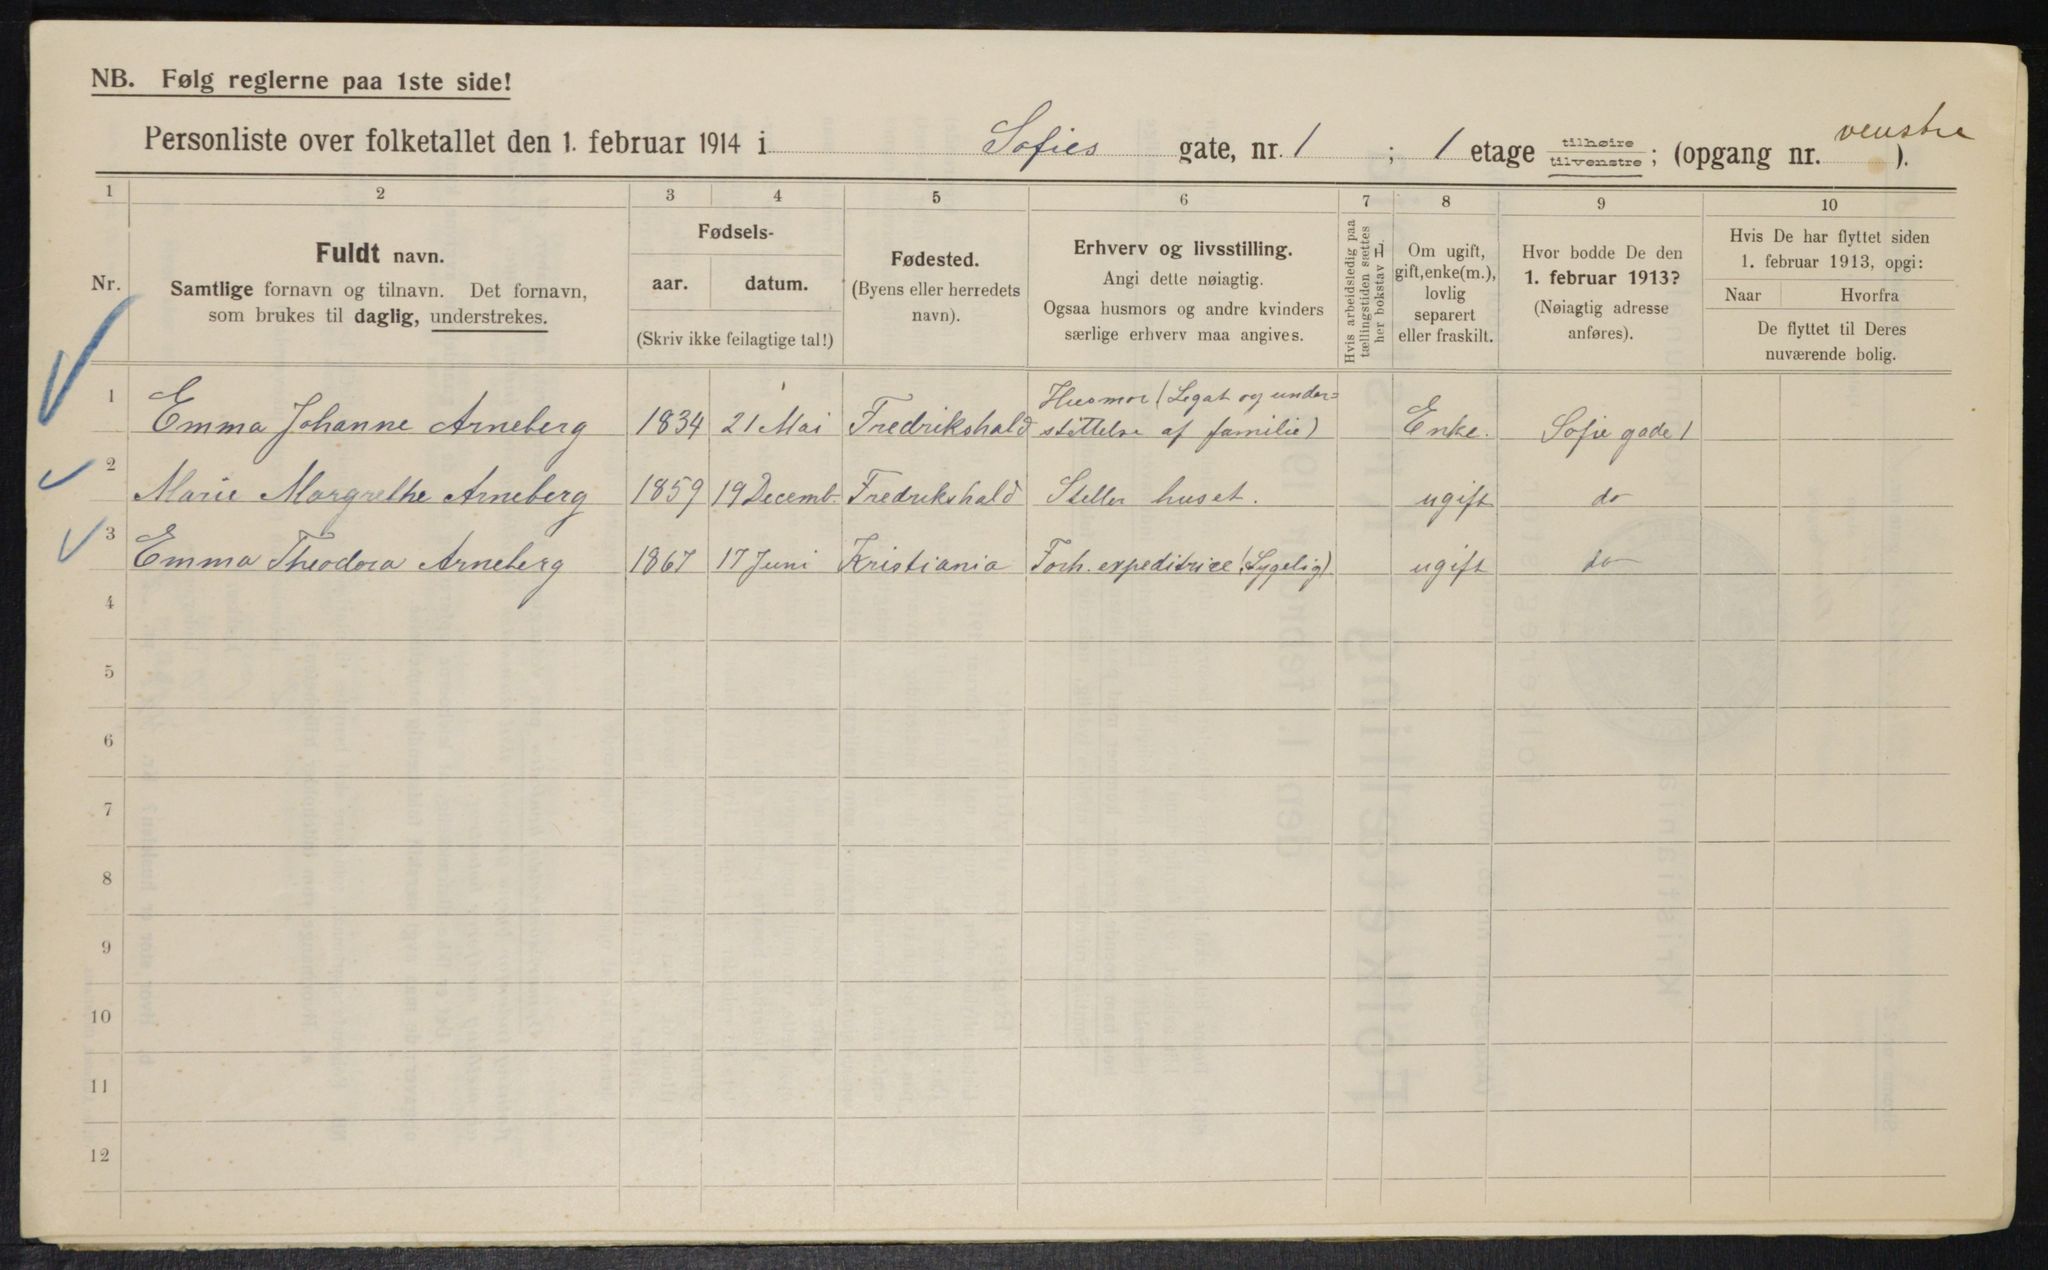 NB. Følg reglerne paa 1ste side!
Personliste over folketallet den 1. februar 1914 i Sofies gate, nr. 1 ; 1 etage tilhøire tilvenstre ; (opgang nr. venstre ).
1 2 3 4 5 6 7 8 9 10
Nr.
Fuldt navn.
Samtlige fornavn og tilnavn. Det fornavn,
som brukes til daglig, understrekes.
Fødsels-
aar. datum.
(Skriv ikke feilagtige tal!)
Fødested.
(Byens eller herredets
navn).
Erhverv og livsstilling.
Angi dette nøiagtig.
Ogsaa husmors og andre kvinders
særlige erhverv maa angives.
Hvis arbeidsledig paa
tællingstiden sættes
her bokstav L.
Om ugift,
gift, enke(m.),
lovlig
separert
eller fraskilt.
Hvor bodde De den
1. februar 1913?
(Nøiagtig adresse
anføres).
Hvis De har flyttet siden
1. februar 1913, opgi:
Naar Hvorfra
De flyttet til Deres
nuværende bolig.
1 Emma Johanne Arneberg 1834 21 Mai Fredrikshald Husmor (Legat og under=
støttelse af familie) Enke. Sofie gade 1
2 Marie Margrethe Arneberg 1859 19 Decemb. Fredrikshald Steller huset. ugift do
3 Emma Theodora Arneberg 1867 17 Juni Kristiania Forh. expeditrice (Sygelig) ugift do
4
5
6
7
8
9
10
11
12